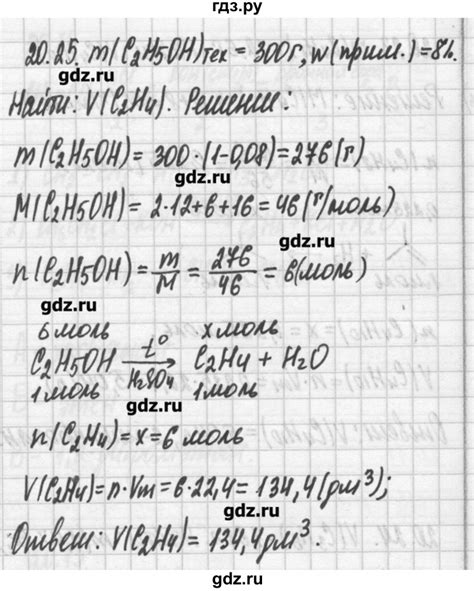 гдз.ру
20.25. m(C₂H₅OH)тех = 300г, w(прим.) = 8%.
gdz.ru
Найти: V(C₂H₄). Решение:
m(C₂H₅OH) = 300·(1-0,08) = 276(г)
gdz.ru
M(C₂H₅OH) = 2·12+6+16 = 46(г/моль)
gdz.ru
n(C₂H₅OH) = m/M = 276/46 = 6(моль)
gdz.ru
6 моль x моль
C₂H₅OH t° → H₂SO₄ C₂H₄ + H₂O
1 моль 1 моль
gdz.ru
n(C₂H₄) = x = 6 моль
gdz.ru
V(C₂H₄) = n·Vm = 6·22,4 = 134,4(дм³);
gdz.ru
Ответ: V(C₂H₄) = 134,4дм³.
gdz.ru